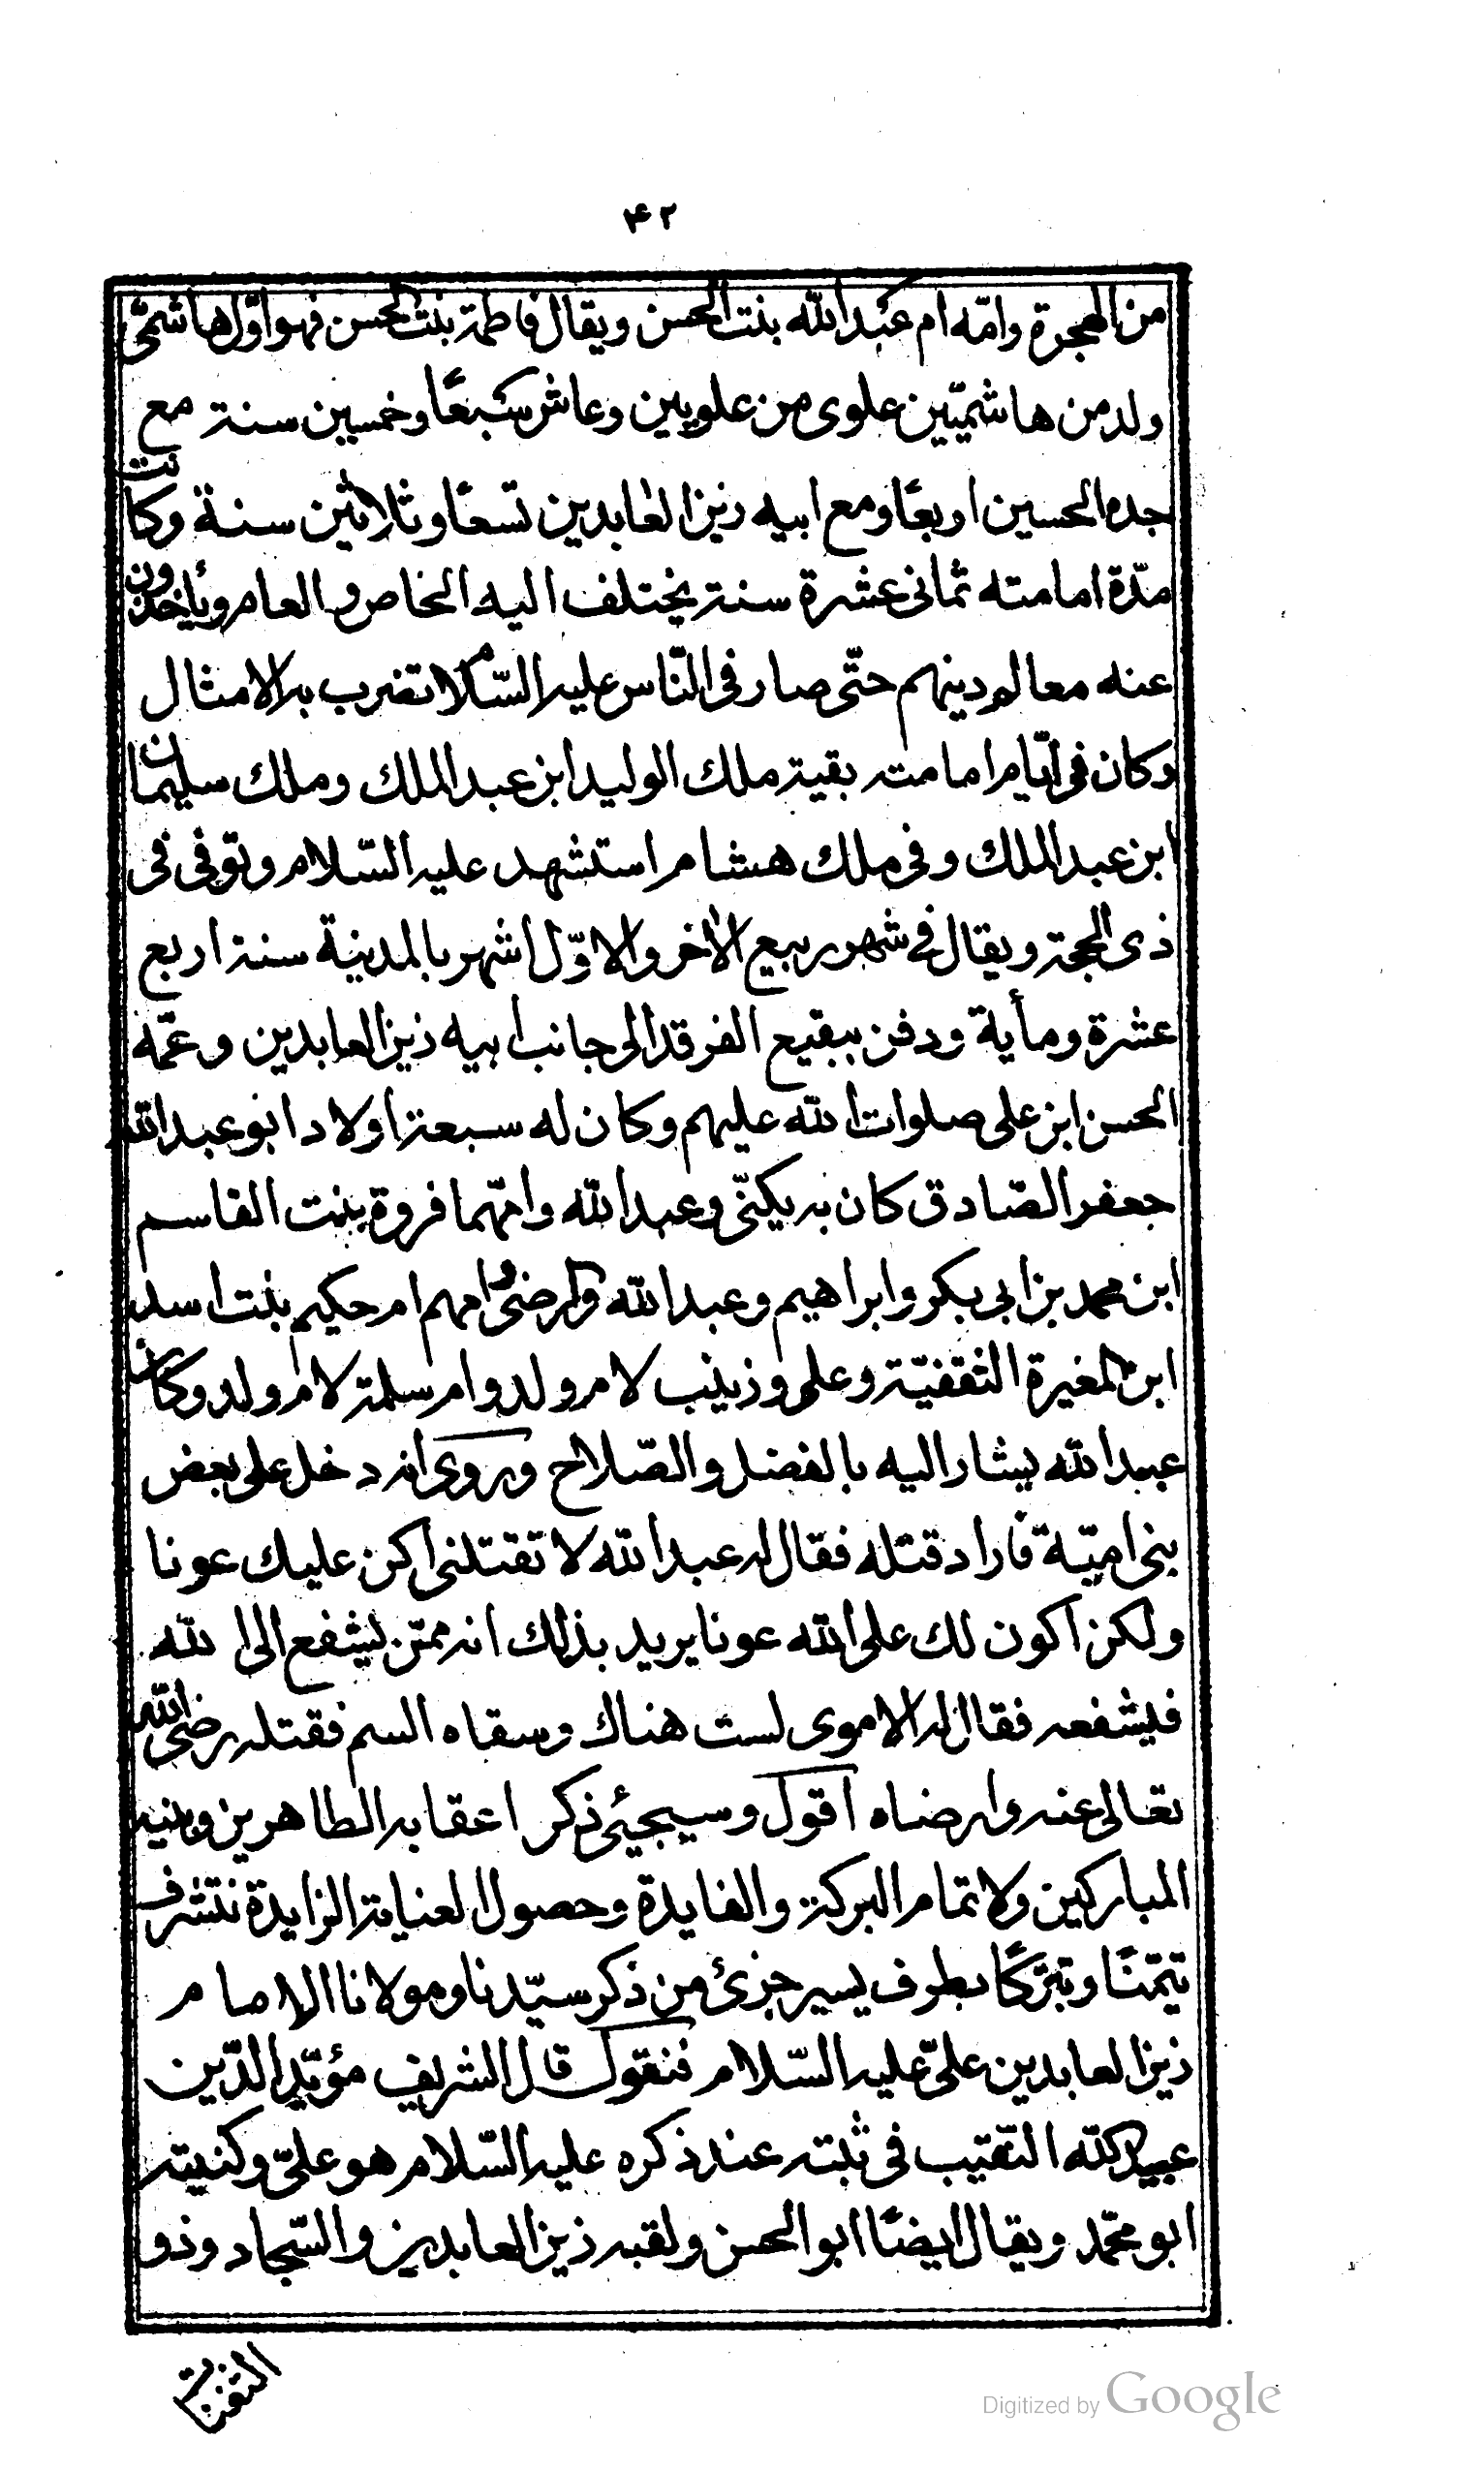 ۴۲
من الهجرة وامّه ام عبد الله بنت الحسن ويقال فاطمة بنت الحسن فهو اوّل هاشمىّ
ولد من هاشميّين علوى من علويين وعاش سبعًا وخمسين سنة مع
جده الحسين اربعًا ومع ابيه زين العابدين تسعًا وثلاثين سنة وكانت
مدّة امامته ثمانى عشرة سنة يختلف اليه الخاص والعام ويأخذون
عنه معالم دينهم حتّى صار فى النّاس عليه السّلام تضرب به الامثال
وكان فى ايّام امامته بقية ملك الوليد ابن عبد الملك وملك سليمان
ابن عبد الملك وفى ملك هشام استشهد عليه السّلام وتوفى فى
ذى الحجة ويقال فى شهر ربيع الأخر والاوّل اشهر بالمدينة سنة اربع
عشرة ومأية ودفن ببقيع الغرقد الى جانب ابيه زين العابدين وعمّه
الحسن ابن على صلوات الله عليهم وكان له سبعة اولاد ابو عبد الله
جعفر الصّادق كان به يكنّى وعبد الله وامّهما فروة بنت القاسم
ابن محمد بن ابى بكر وابراهيم وعبد الله والرضىّ امهم ام حكيم بنت اسد
ابن المغيرة الثقفيّة وعلى وزينب لام ولد وام سلمة لام ولد وكان
عبد الله يشار اليه بالفضل والصّلاح وروى انه دخل على بعض
بنى اميّة فاراد قتله فقال له عبد الله لا تقتلنى اكن عليك عونا
ولكن اكون لك على الله عونا يريد بذلك انه ممّن يشفع الى الله
فيشفعه فقال له الاموى لست هناك وسقاه السم فقتله رضى الله
تعالى عنه وارضاه اقول وسيجيئ ذكر اعقابه الطاهرين وبنيه
المباركين ولاتمام البركة والفايدة وحصول العناية الزايدة نتشرف
تيمّنًا وتبرّكًا بطرف يسير جزئ من ذكر سيّدنا ومولانا الامام
زين العابدين علىّ عليه السّلام فنقول قال الشريف مؤيّد الدّين
عبيد الله النّقيب فى ثبته عند ذكره عليه السّلام هو علىّ وكنيته
ابو محمّد ويقال ايضًا ابو الحسن ولقبه زين العابدين والسّجاد وذو
الثفنات
Digitized by Google